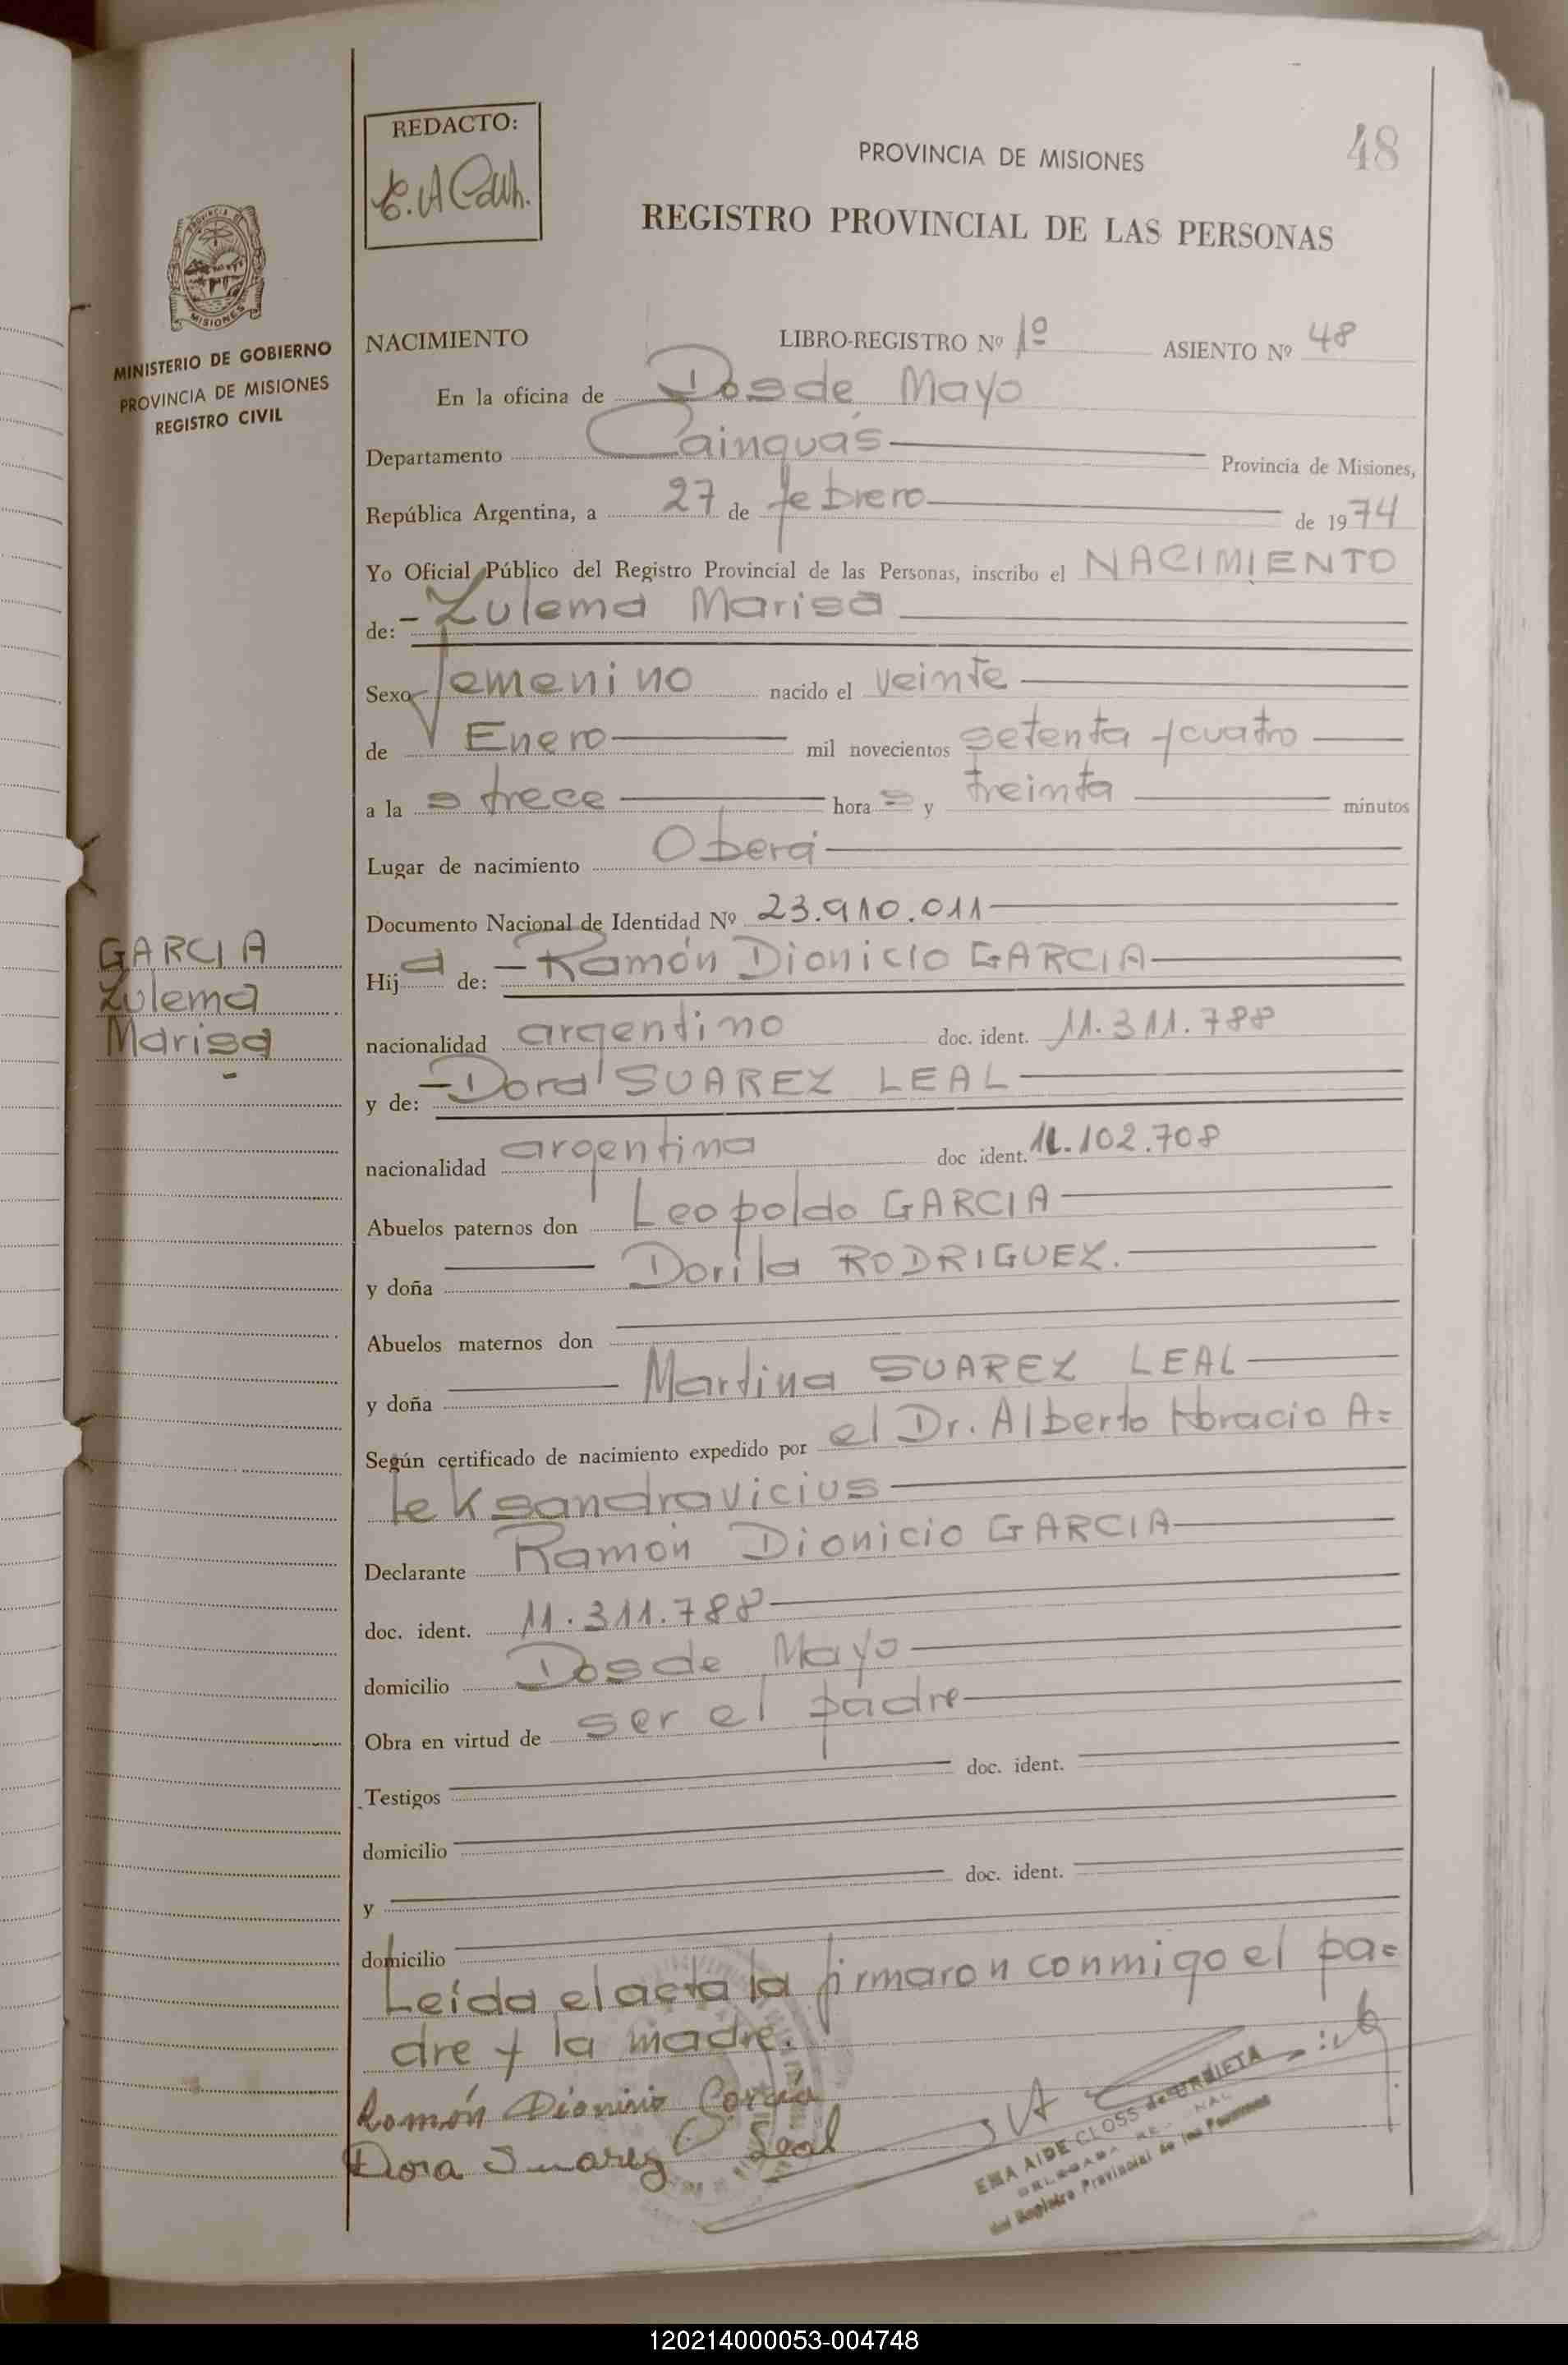 REDACTO:
PROVINCIA DE MISIONES
48
REGISTRO PROVINCIAL DE LAS PERSONAS
PROVINCIA DE
MISIONES
MINISTERIO DE GOBIERNO
PROVINCIA DE MISIONES
REGISTRO CIVIL
NACIMIENTO LIBRO-REGISTRO Nº 1º ASIENTO Nº 48
En la oficina de Dos de Mayo
Departamento Cainguás Provincia de Misiones,
República Argentina, a 27 de febrero de 1974
Yo Oficial Público del Registro Provincial de las Personas, inscribo el NACIMIENTO
de: - Zulema Marisa
Sexo femenino nacido el veinte
de Enero mil novecientos setenta y cuatro
a la s trece hora s y treinta minutos
Lugar de nacimiento Oberá
Documento Nacional de Identidad Nº 23.910.011
GARCIA
Zulema
Marisa
-
Hij a de: - Ramón Dionicio GARCIA
nacionalidad argentino doc. ident. 11.311.788
y de: - Dora SUAREZ LEAL
nacionalidad argentina doc ident. 11.102.708
Abuelos paternos don Leopoldo GARCIA
y doña Dorila RODRIGUEZ.
Abuelos maternos don
y doña Martina SUAREZ LEAL
Según certificado de nacimiento expedido por el Dr. Alberto Horacio A=
leksandravicius
Declarante Ramón Dionicio GARCIA
doc. ident. 11.311.788
domicilio Dos de Mayo
Obra en virtud de ser el padre
Testigos doc. ident.
domicilio
y doc. ident.
domicilio
Leída el acta la firmaron conmigo el pa=
dre y la madre.
Ramón Dionisio García
Dora Suarez Leal
EMA AIDE CLOSS de URRIETA
DELEGADA
del Registro Provincial de las Personas
120214000053-004748